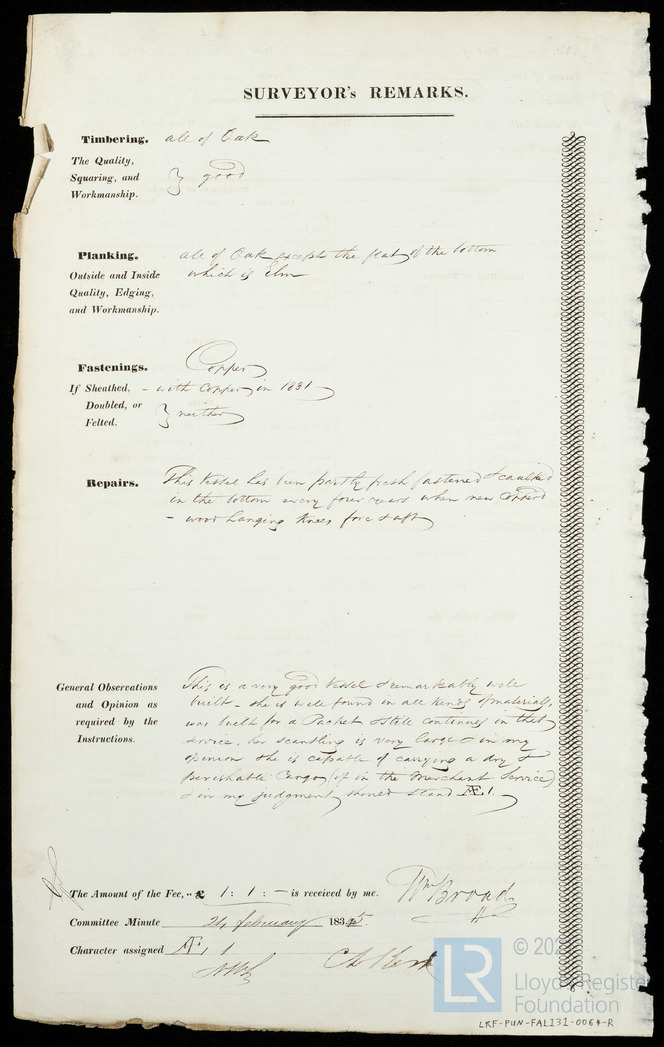 SURVEYOR's REMARKS.
Timbering. all of Oak
The Quality,
Squaring, and } good
Workmanship.
Planking. all of Oak except the flat of the bottom
Outside and Inside which is Elm
Quality, Edging,
and Workmanship.
Fastenings. Copper
If Sheathed, - with Copper in 1831
Doubled, or } neither
Felted.
Repairs. This Vessel has been partly fresh fastened & caulked
in the bottom every four years when new Copperd
- wood hanging Knees fore & aft
General Observations
and Opinion as
required by the
Instructions.
This is a very good Vessel & remarkably well
built - she is well found in all kinds of materials,
was built for a Packet & still continues in that
service, her scantling is very large & in my
opinion she is capable of carrying a dry &
perishable Cargo (if in the Merchant Service)
& in my judgment should stand Æ 1.
The Amount of the Fee, .. £ 1 : 1 : - is received by me. Wm Broad
Committee Minute 24 February 1835.
Character assigned Æ 1
© 202
Lloyd's Register
Foundation
LR
LRF-PUN-FAL131-0064-R